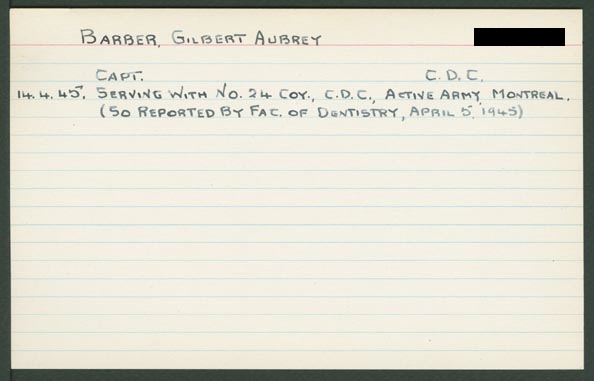 BARBER, GILBERT AUBREY
CAPT. C.D.C.
14.4.45. SERVING WITH NO. 24 COY., C.D.C., ACTIVE ARMY, MONTREAL.
(SO REPORTED BY FAC. OF DENTISTRY, APRIL 5, 1945)